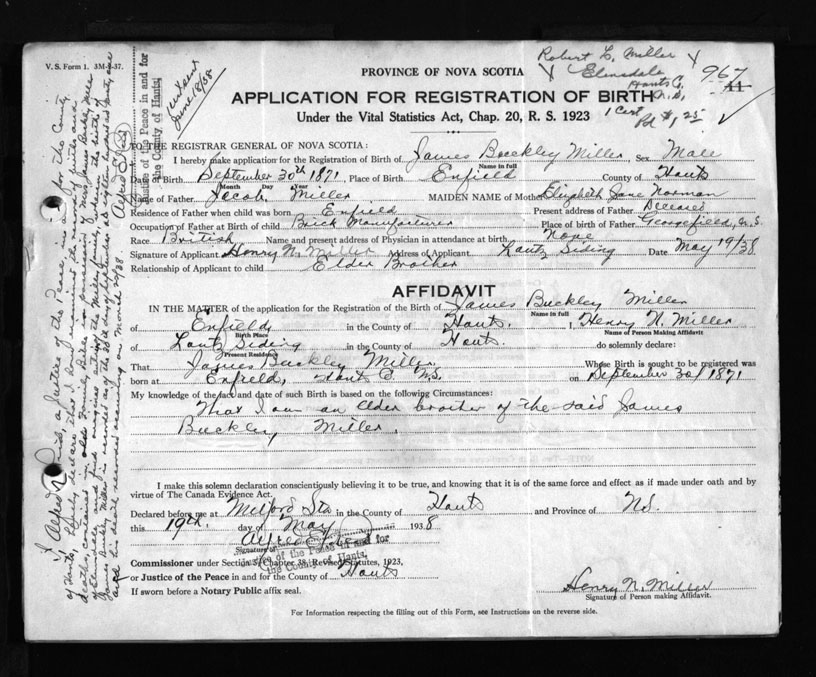 V. S. Form 1. 3M-2-37.
Robert L. Miller
Elmsdale
Hants Co.
N. S.
1 Cert
Pd $1.25
967
June 18/38
PROVINCE OF NOVA SCOTIA
APPLICATION FOR REGISTRATION OF BIRTH
Under the Vital Statistics Act, Chap. 20, R. S. 1923
TO THE REGISTRAR GENERAL OF NOVA SCOTIA:
I hereby make application for the Registration of Birth of James Buckley Miller Sex Male
Name in full
Date of Birth September 30th 1871, Place of Birth Enfield County of Hants
Month Day Year
Name of Father Jacob Miller MAIDEN NAME of Mother Elizabeth Jane Norman
Residence of Father when child was born Enfield Present address of Father Deceased
Occupation of Father at Birth of child Brick Manufacturer Place of birth of Father Georgefield, N.S.
Race British Name and present address of Physician in attendance at birth None
Signature of Applicant Henry N. Miller Address of Applicant Lantz Siding Date May 19/38
Relationship of Applicant to child Elder Brother
AFFIDAVIT
IN THE MATTER of the application for the Registration of the Birth of James Buckley Miller
Name in full
of Enfield in the County of Hants. I, Henry N. Miller
Birth Place Name of Person Making Affidavit
of Lantz Siding in the County of Hants. do solemnly declare:
Present Residence
That James Buckley Miller Whose Birth is sought to be registered was
born at Enfield, Hants Co N.S. on September 30/1871
My knowledge of the fact and date of such Birth is based on the following Circumstances:
That I am an elder brother of the said James
Buckley Miller.
I make this solemn declaration conscientiously believing it to be true, and knowing that it is of the same force and effect as if made under oath and by
virtue of The Canada Evidence Act.
Declared before me at Milford Sta in the County of Hants and Province of N.S.
this 19th. day of May 1938
Alfred
Signature of
Justice of the Peace in and for
the County of Hants.
Commissioner under Section Chapter 38, Revised Statutes, 1923,
or Justice of the Peace in and for the County of Hants
If sworn before a Notary Public affix seal.
Henry N. Miller
Signature of Person making Affidavit.
For Information respecting the filling out of this Form, see Instructions on the reverse side.
I Alfred a Justice of the Peace, in and for the County
of Hants, hereby declare that I have
James Buckley Miller is recorded as of the 30th day of September
Justice of the Peace in and for
the County of Hants.